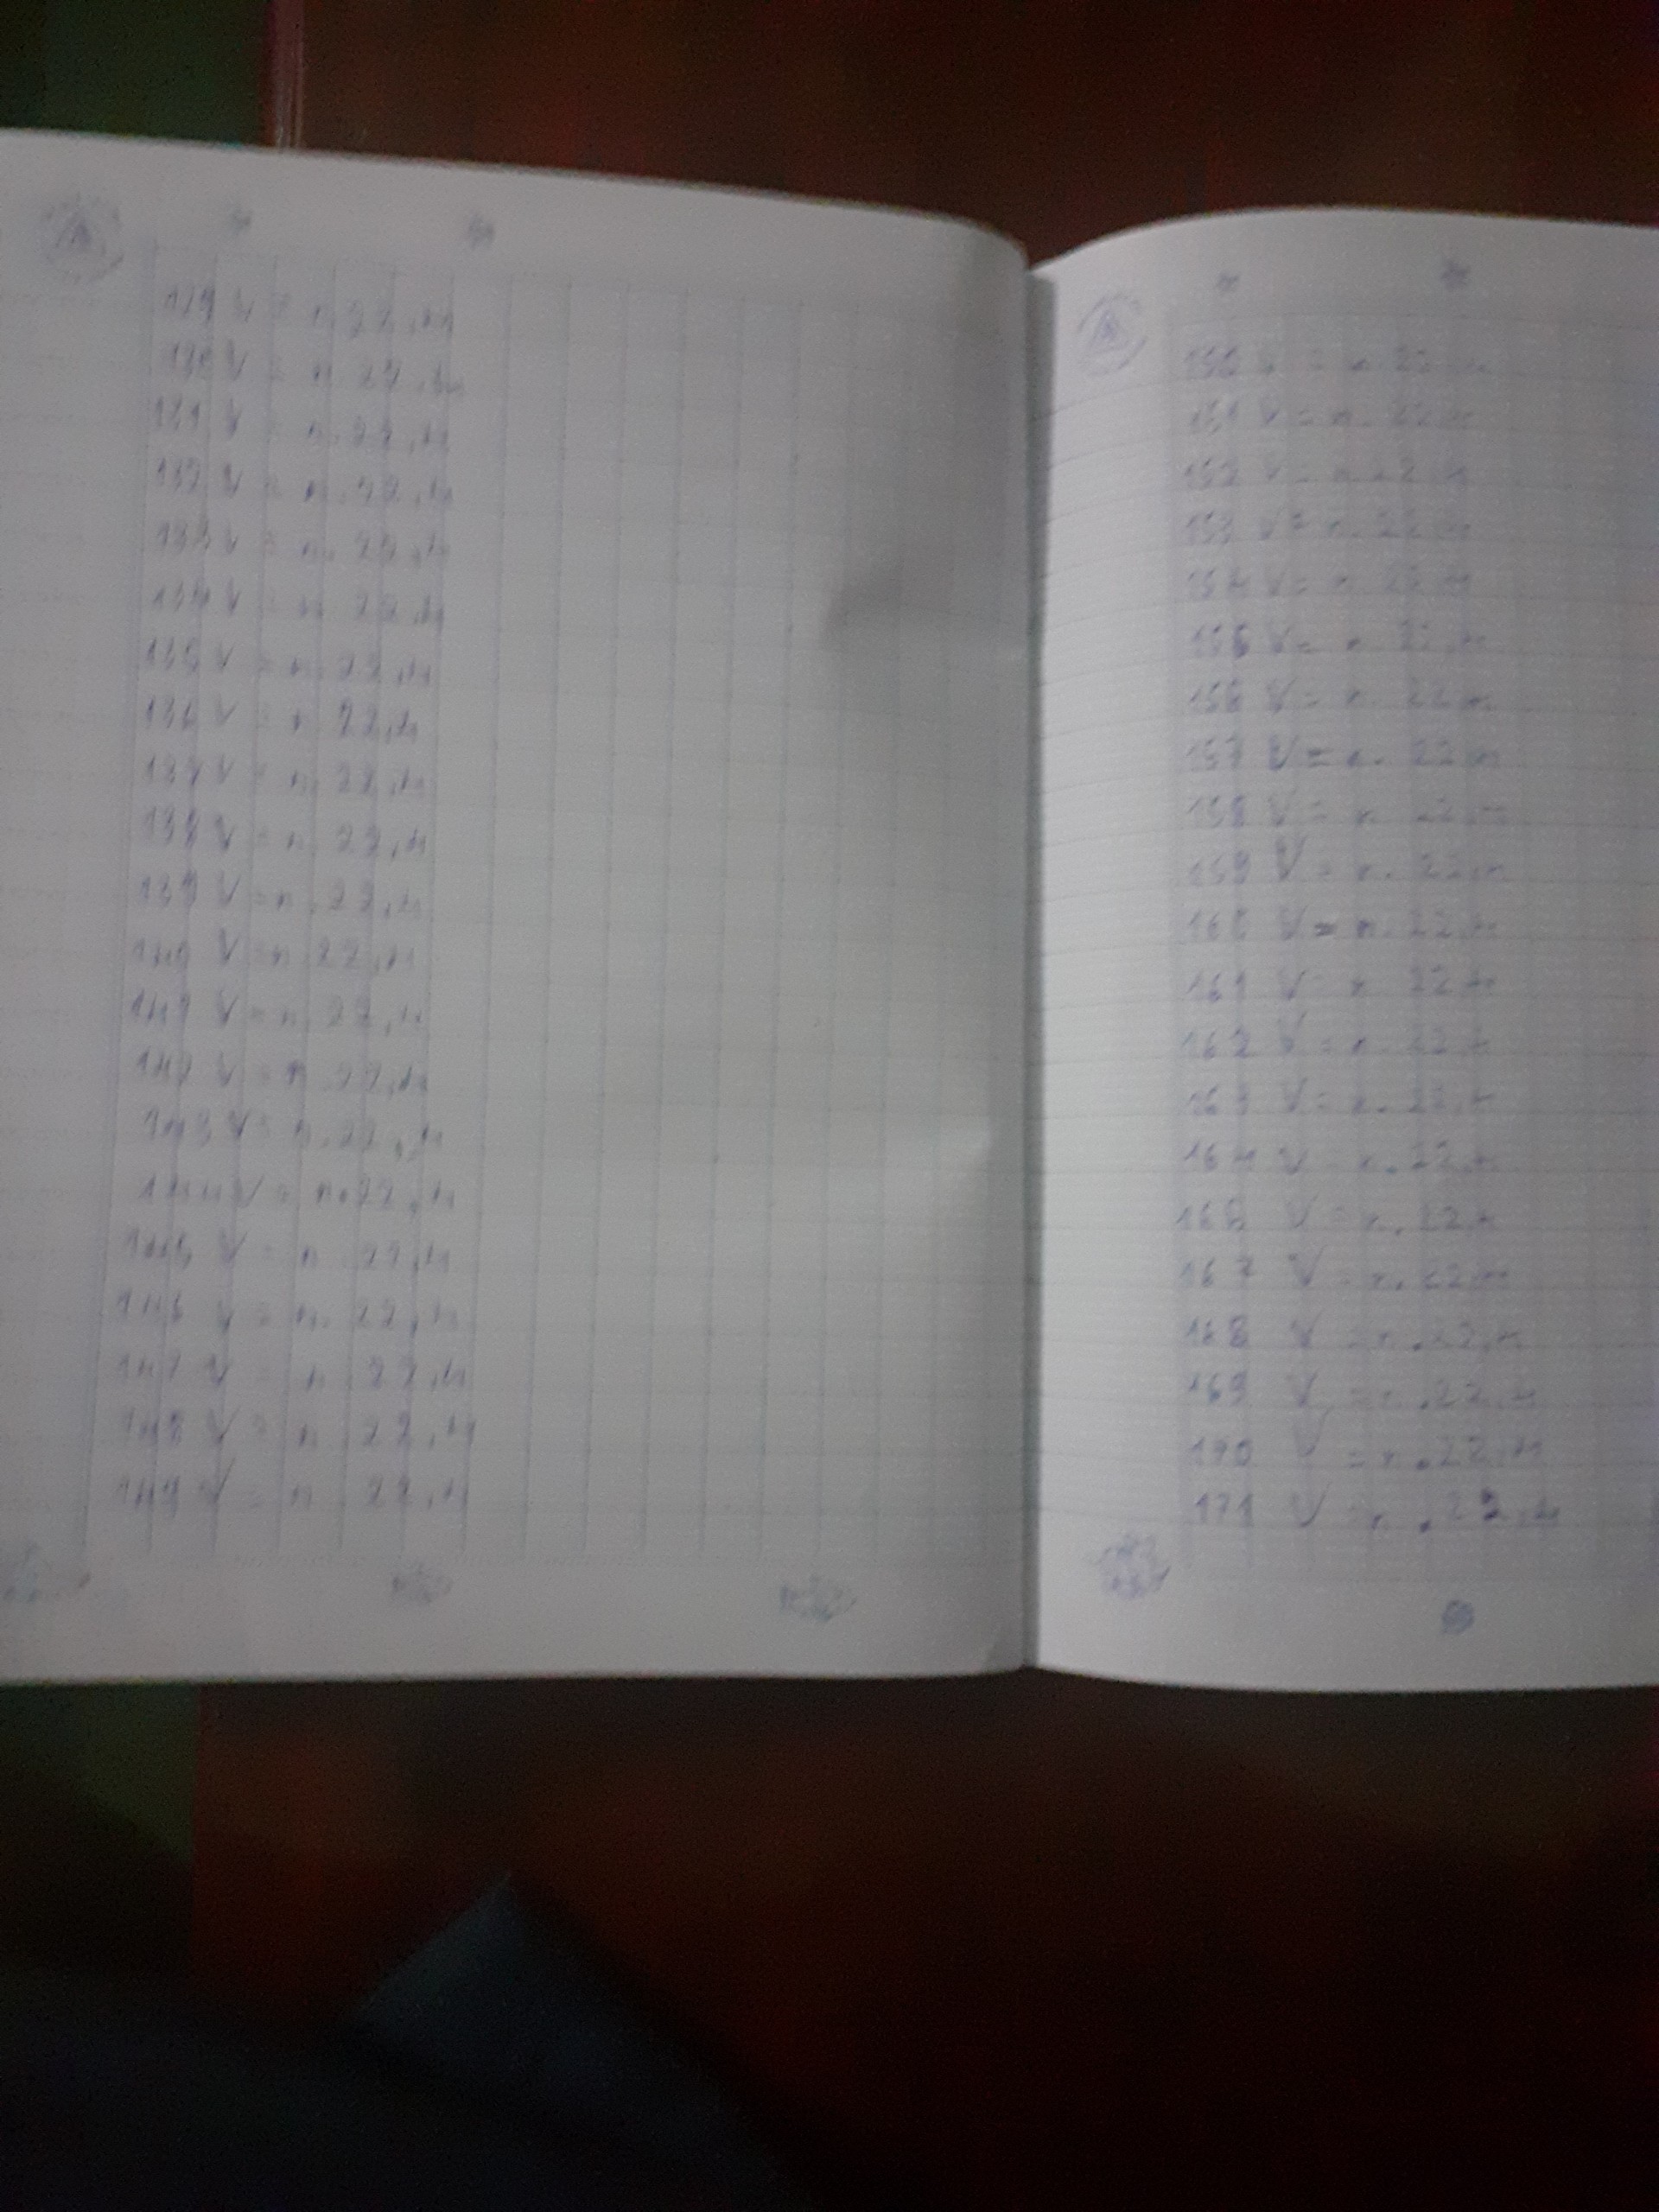 129 V = n.22,4
130 V = n.22,4
131 V = n.22,4
132 V = n.22,4
133 V = n.22,4
134 V = n.22,4
135 V = n.22,4
136 V = n 22,4
137 V = n.22,4
138 V = n.22,4
139 V = n.22,4
140 V = n.22,4
141 V = n.22,4
142 V = n.22,4
143 V = n.22,4
144 V = n.22,4
145 V = n.22,4
146 V = n.22,4
147 V = n.22,4
148 V = n.22,4
149 V = n.22,4
150 V = n.22,4
151 V = n.22,4
152 V = n.22,4
153 V = n.22,4
154 V = n.22,4
155 V = n.22,4
156 V = n.22,4
157 V = n.22,4
158 V = n.22,4
159 V = n.22,4
160 V = n.22,4
161 V = n.22,4
162 V = n.22,4
163 V = n.22,4
164 V = n.22,4
166 V = n.22,4
167 V = n.22,4
168 V = n.22,4
169 V = n.22,4
170 V = n.22,4
171 V = n.22,4